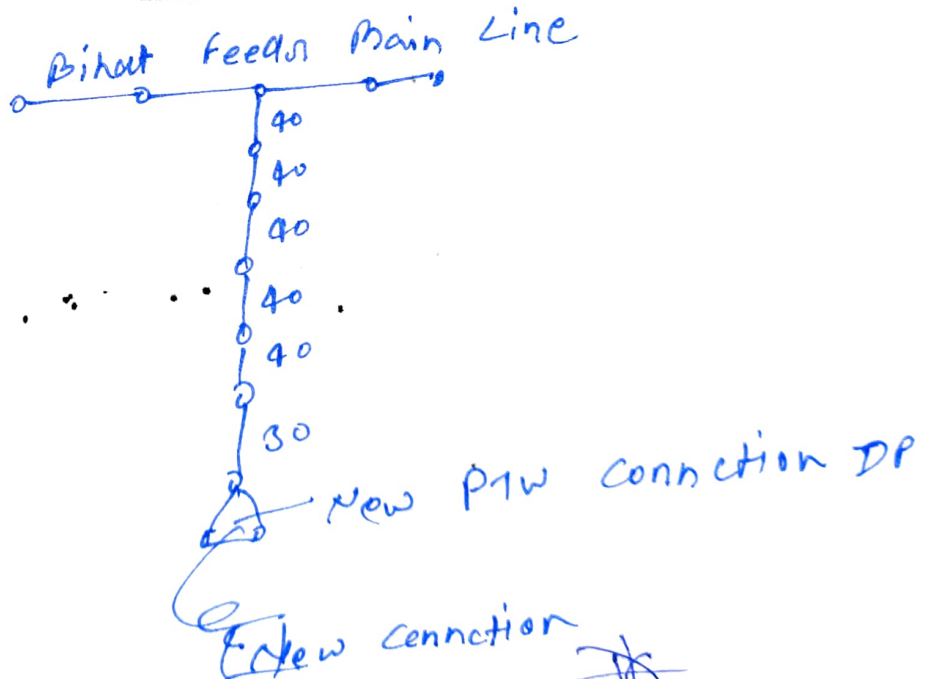 Bihat Feedr Main Line
40
40
40
40
40
30
New PTW Connction DP
New Connction